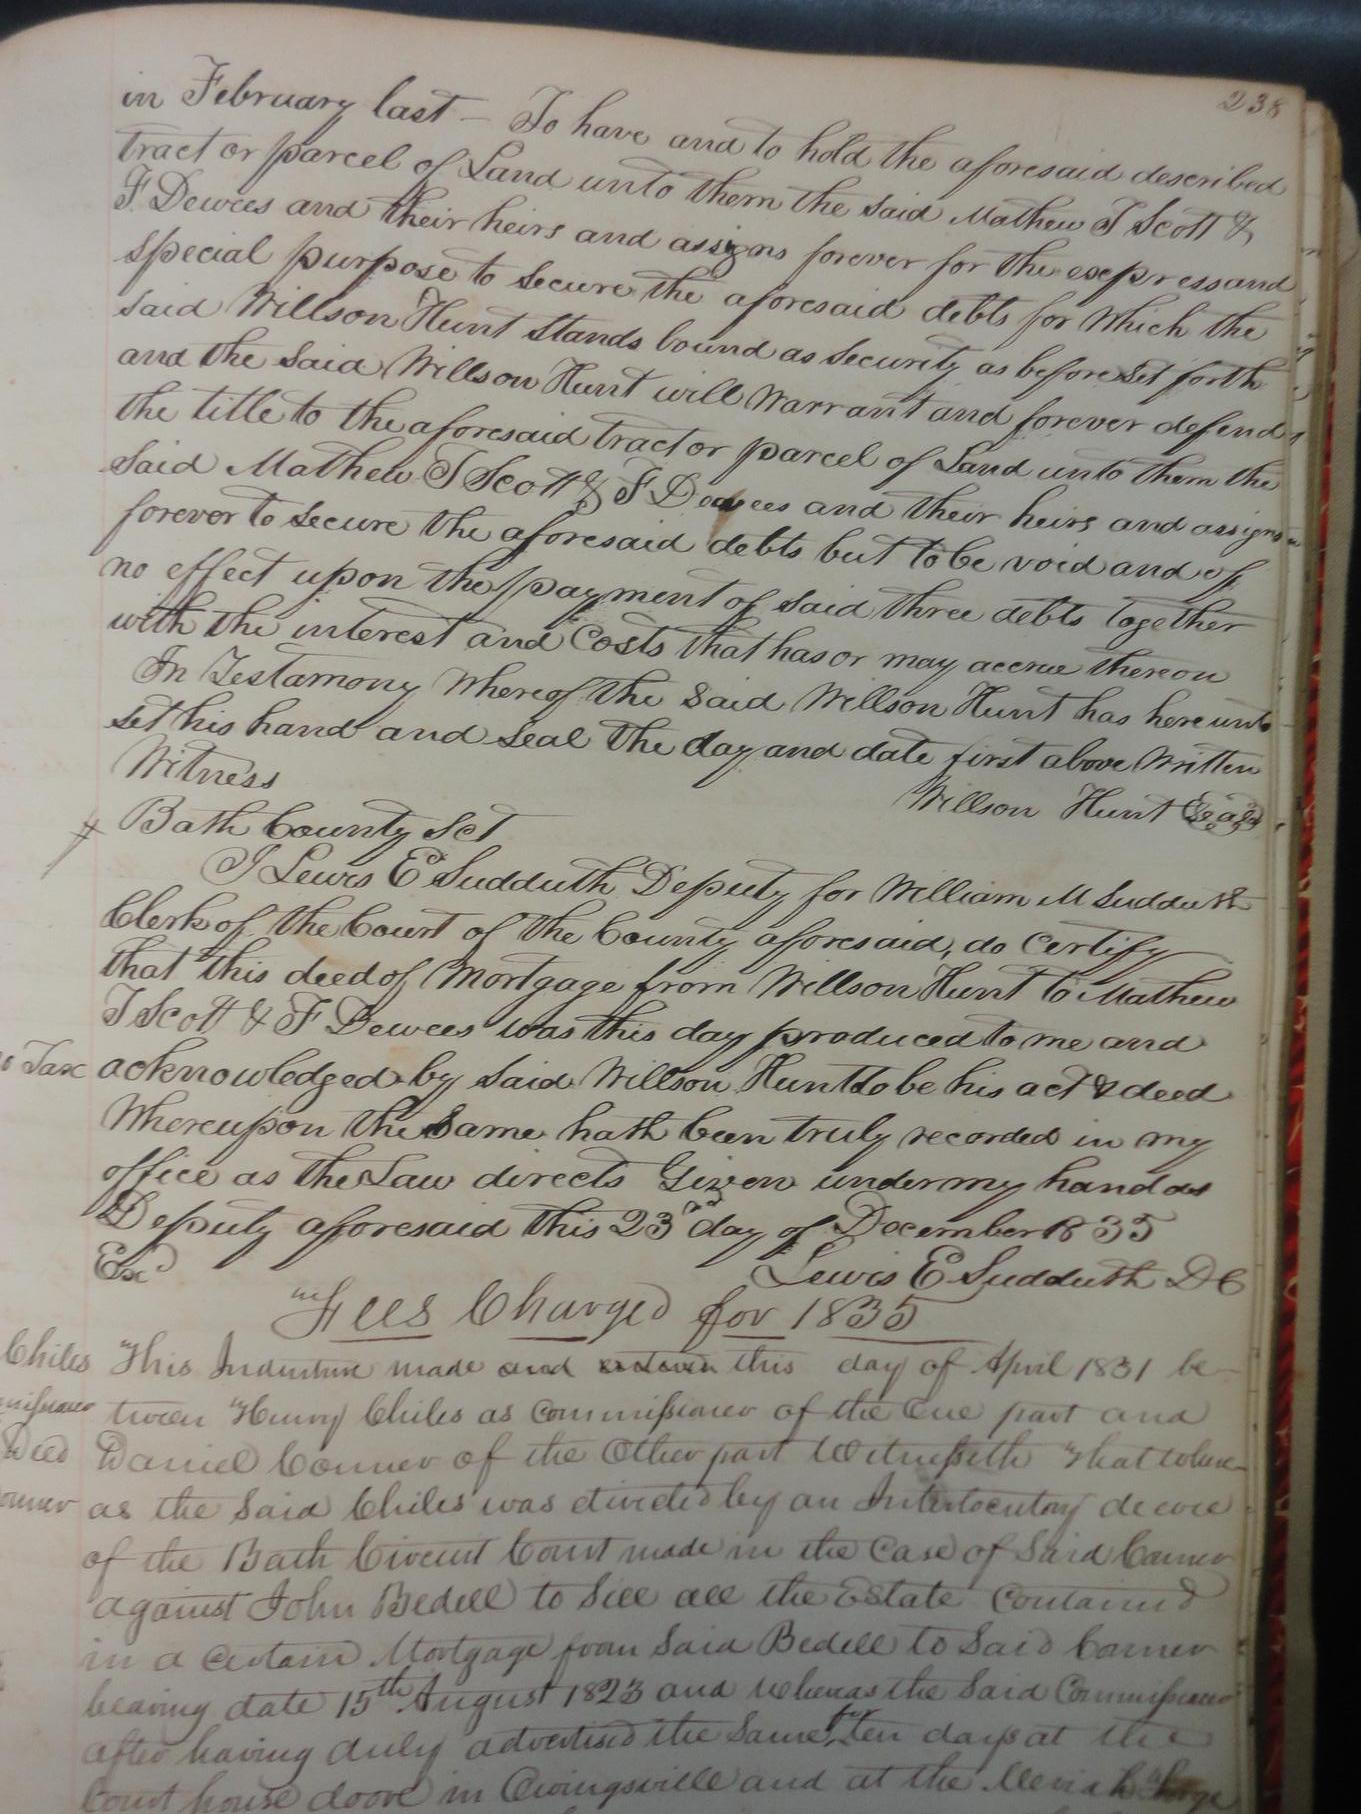 238
in February last – To have and to hold the aforesaid described
tract or parcel of Land unto them the said Mathew T Scott &
F. Dewees and their heirs and assigns forever for the express and
special purpose to secure the aforesaid debts for which the
said Willson Hunt stands bound as security as before set forth
and the said Willson Hunt will Warrant and forever defend
the title to the aforesaid tract or parcel of Land unto them the
said Mathew T Scott & F Dewees and their heirs and assigns
forever to secure the aforesaid debts but to be void and of
no effect upon the payment of said three debts together
with the interest and Costs that has or may accrue thereon
In Testamony Whereof the said Willson Hunt has hereunto
set his hand and seal the day and date first above Written
Witness
Willson Hunt Seal
Bath County Sct
I Lewis E Sudduth Deputy for William M Sudduth
Clerk of the Court of the County aforesaid, do Certify
that this deed of Mortgage from Willson Hunt to Mathew
T Scott & F Dewees was this day produced to me and
Tax acknowledged by said Willson Hunt to be his act & deed
Whereupon the Same hath been truly recorded in my
office as the Law directs Given under my hand as
Deputy aforesaid this 23rd day of December 1835
Exd
Lewis E Sudduth D C
Fees Charged for 1835
Chiles This Indenture made and this day of April 1831 be-
tween Henry Chiles as Commissioner of the One part and
Deed Daniel Conner of the Other part Witnesseth That where-
as the Said Chiles was directed by an Interlocutory decree
of the Bath Circuit Court made in the Case of Said Conner
against John Bedell to Sell all the Estate Contained
in a Certain Mortgage from Said Bedell to Said Conner
bearing date 15th August 1823 and Whereas the Said Commissioner
after having duly advertised the Same for ten days at the
Court house door in Owingsville and at the